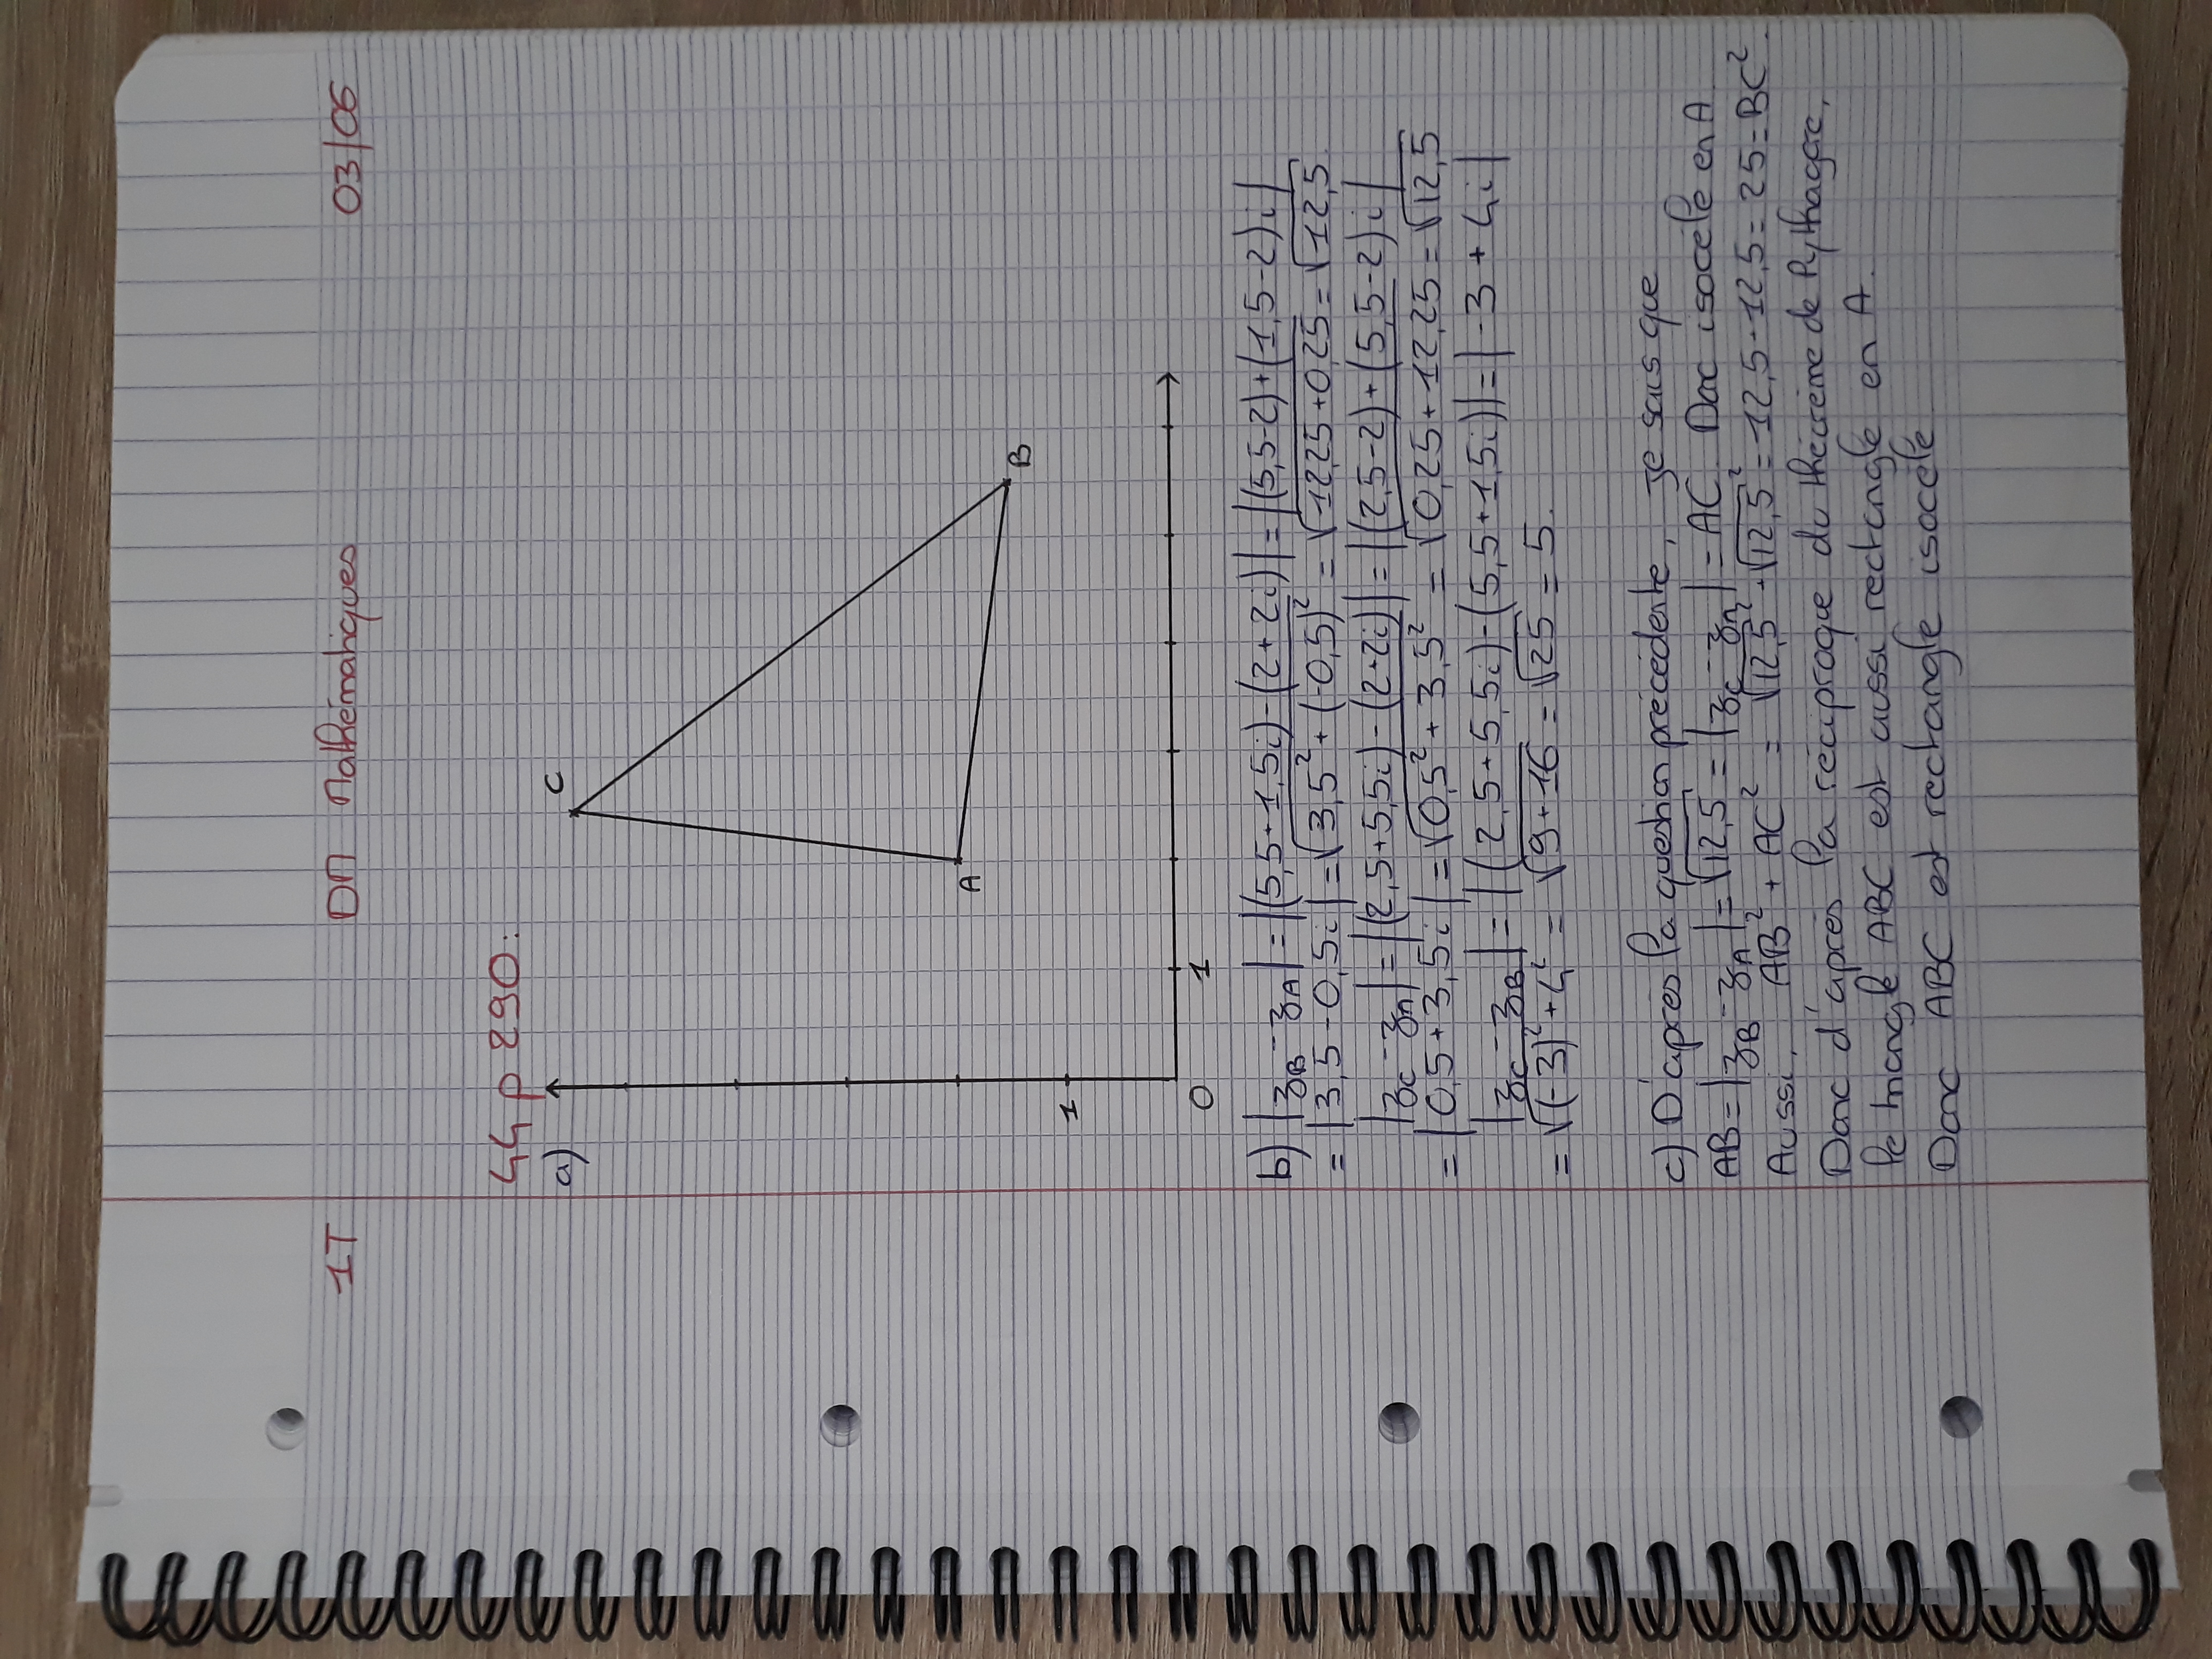 1T DM Mathématiques 03/06
44 p 290:
a)
C
A
B
1
0 1
b) |zB - zA| = |(5,5+1,5i)-(2+2i)| = |(5,5-2)+(1,5-2)i|
= |3,5-0,5i| = √(3,5² + (-0,5)²) = √(12,25+0,25) = √12,5.
|zC - zA| = |(2,5+5,5i)-(2+2i)| = |(2,5-2)+(5,5-2)i|
= |0,5+3,5i| = √(0,5² + 3,5²) = √(0,25+12,25) = √12,5
|zC - zB| = |(2,5+5,5i)-(5,5+1,5i)| = |-3+4i|
= √((-3)²+4²) = √(9+16) = √25 = 5.
c) D'après la question précédente, je sais que
AB = |zB - zA| = √12,5 = |zC - zA| = AC. Donc isocèle en A.
Aussi, AB² + AC² = √12,5² + √12,5² = 12,5+12,5 = 25 = BC².
Donc d'après la réciproque du théorème de Pythagore,
le triangle ABC est aussi rectangle en A.
Donc ABC est rectangle isocèle